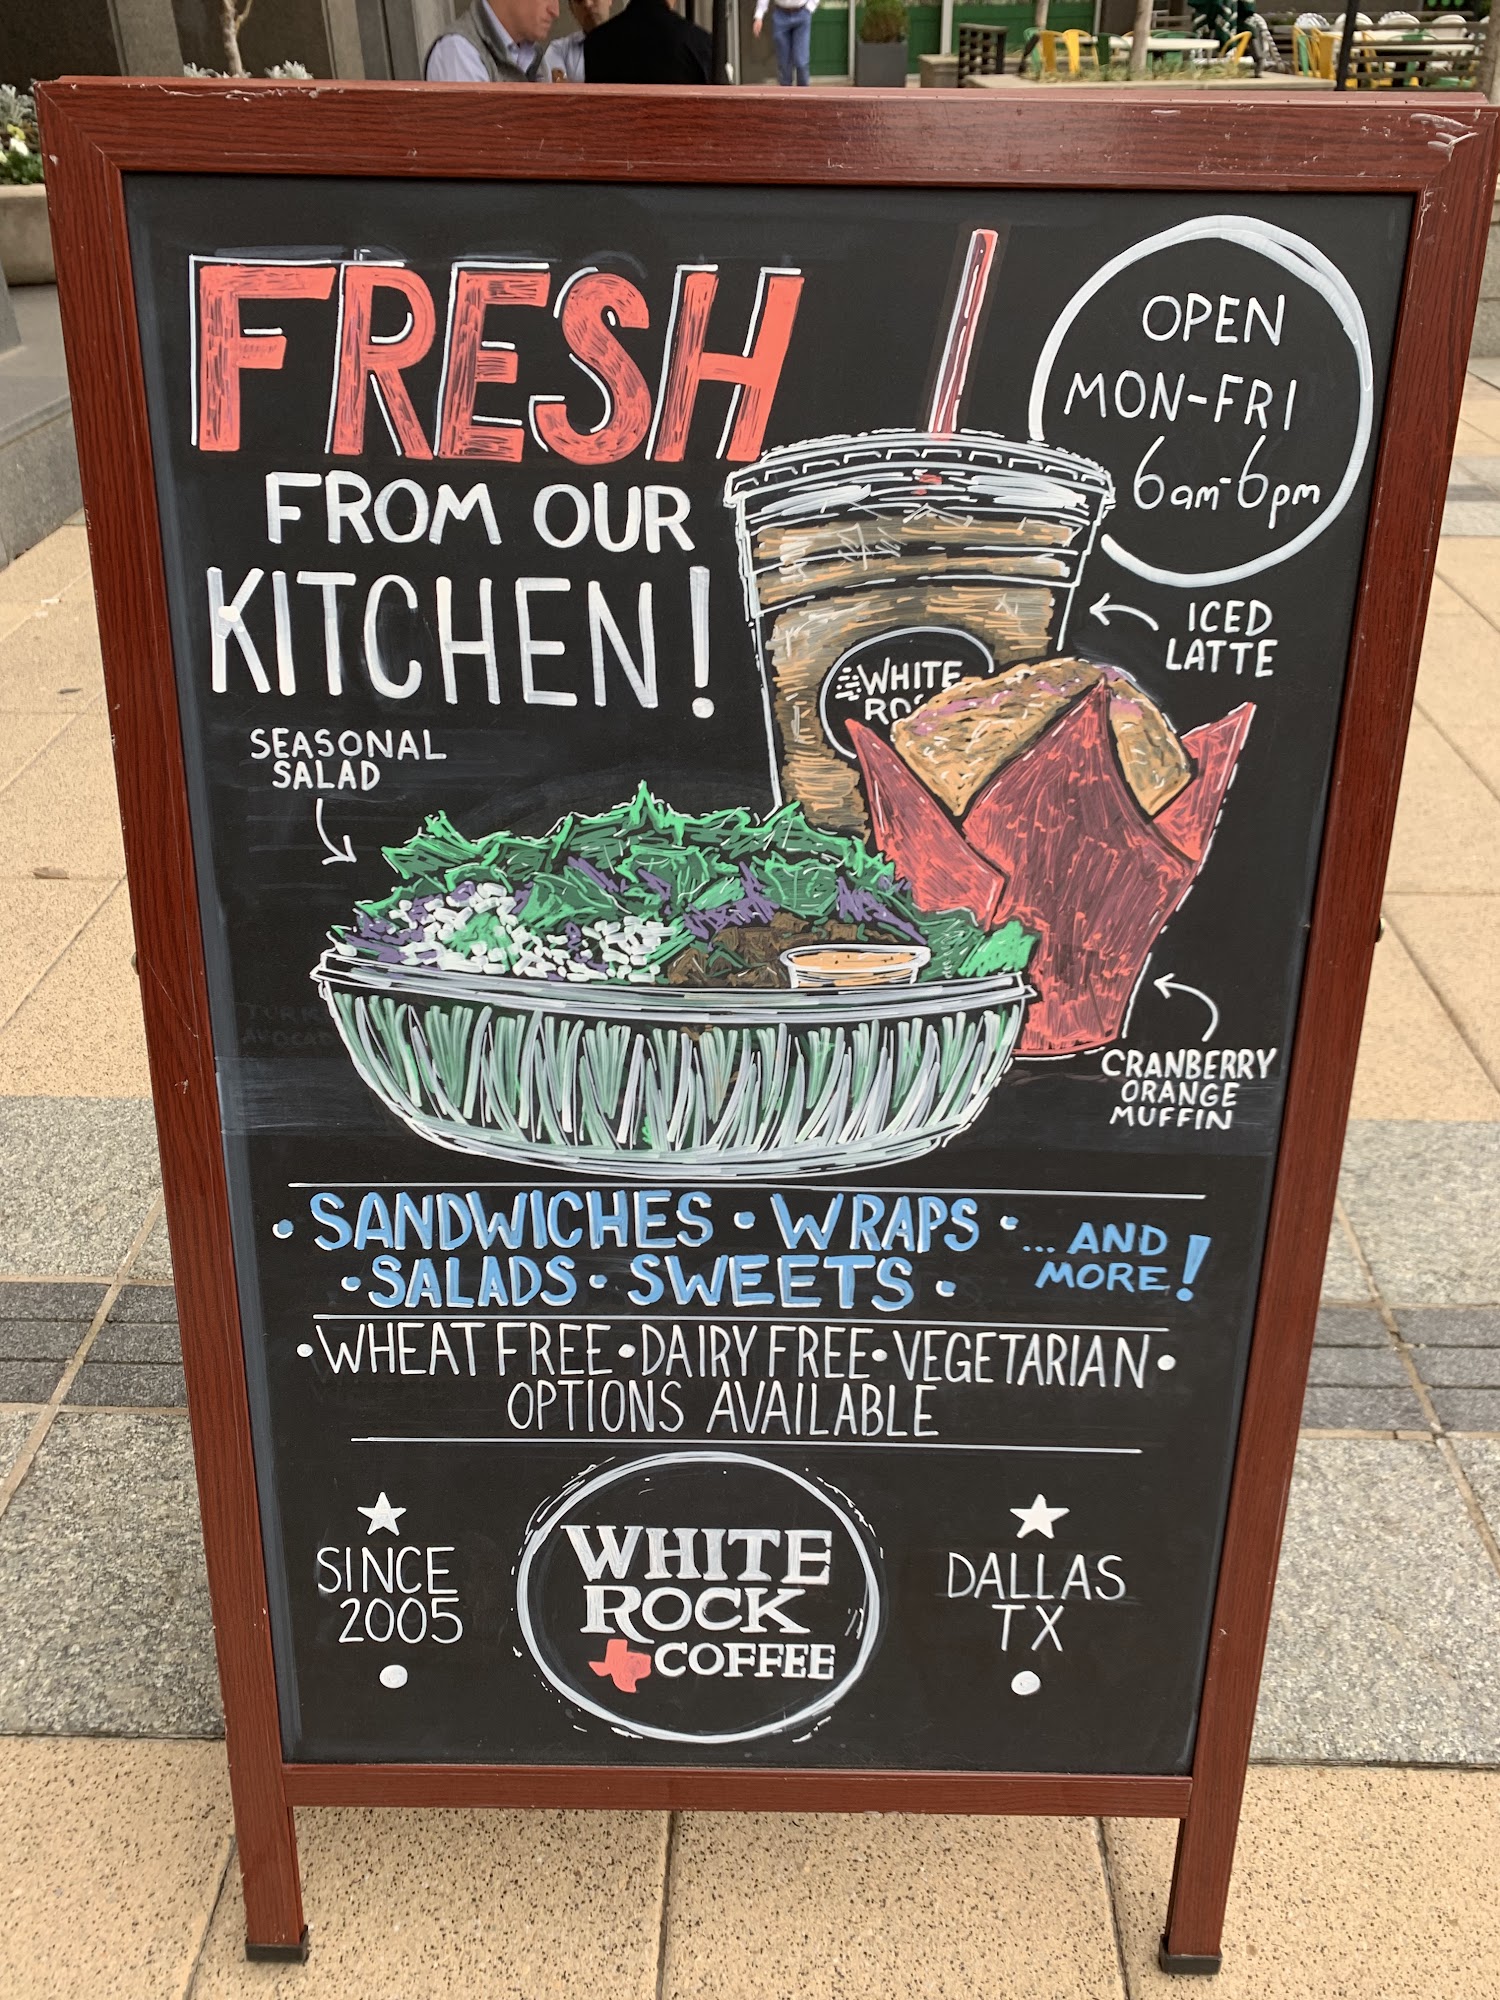 FRESH
FROM OUR
KITCHEN!
OPEN
MON-FRI
6am-6pm
ICED
LATTE
WHITE
SEASONAL
SALAD
CRANBERRY
ORANGE
MUFFIN
• SANDWICHES • WRAPS •
• SALADS • SWEETS •
... AND
MORE!
• WHEAT FREE • DAIRY FREE • VEGETARIAN •
OPTIONS AVAILABLE
SINCE
2005
WHITE
ROCK
COFFEE
DALLAS
TX